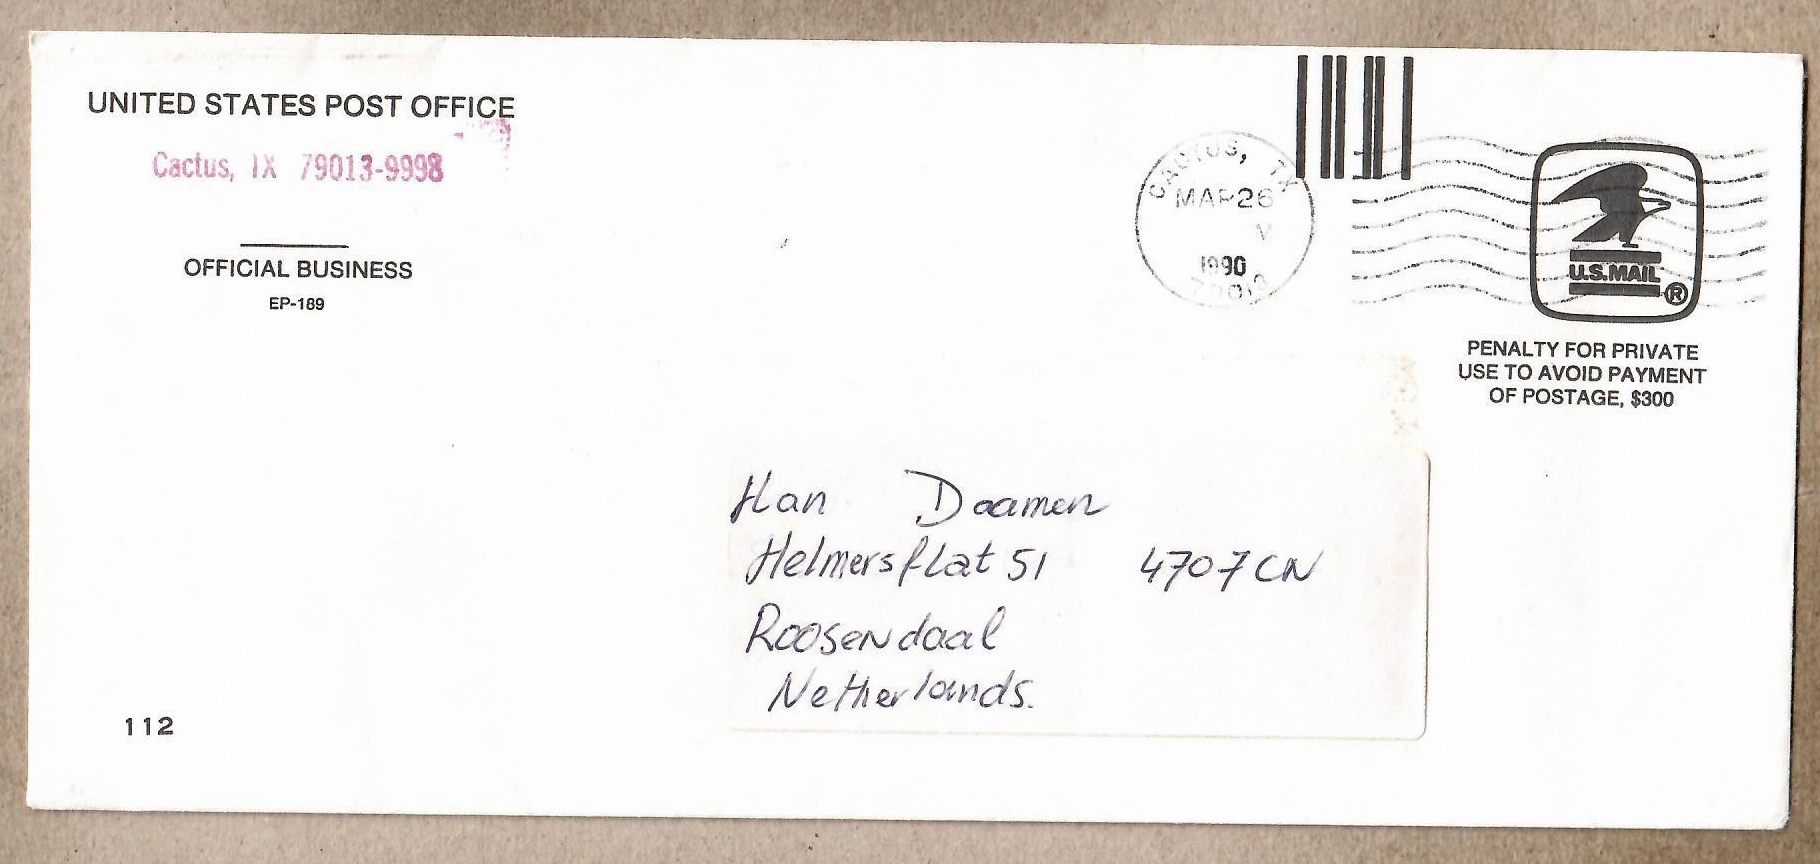 UNITED STATES POST OFFICE
Cactus, TX 79013-9998
OFFICIAL BUSINESS
EP-189
CACTUS, TX
MAR 26
V
1990
79013
U.S.MAIL
®
PENALTY FOR PRIVATE
USE TO AVOID PAYMENT
OF POSTAGE, $300
Han Daamen
Helmersflat 51 4707CN
Roosendaal
Netherlands.
112